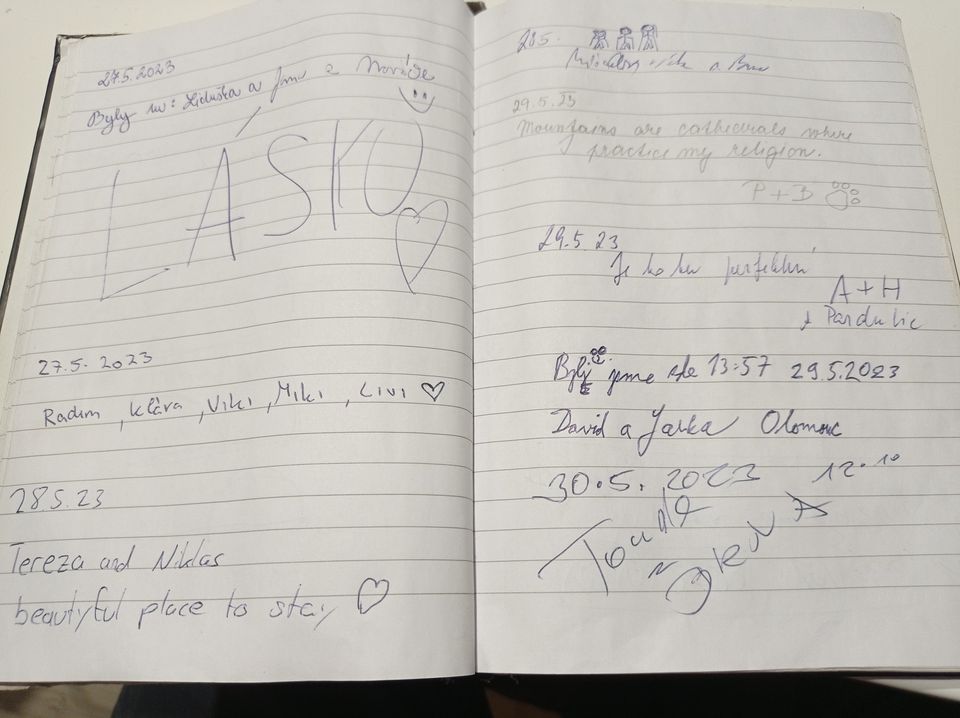 27.5.2023
Byly tu: Liduška a
LÁSKO
27.5. 2023
Radim, Klára, Viki, Miki, Livi
28.5.23
Tereza and Niklas
beautyful place to stay
28.5.
a
29.5.23
Mountains are cathedrals where
practice my religion.
P + B
29.5.23
Je to tu perfektní
A + H
Pardubic
Byli jsme zde 13:57 29.5.2023
David a Jarka Olomouc
30.5. 2023 12.10